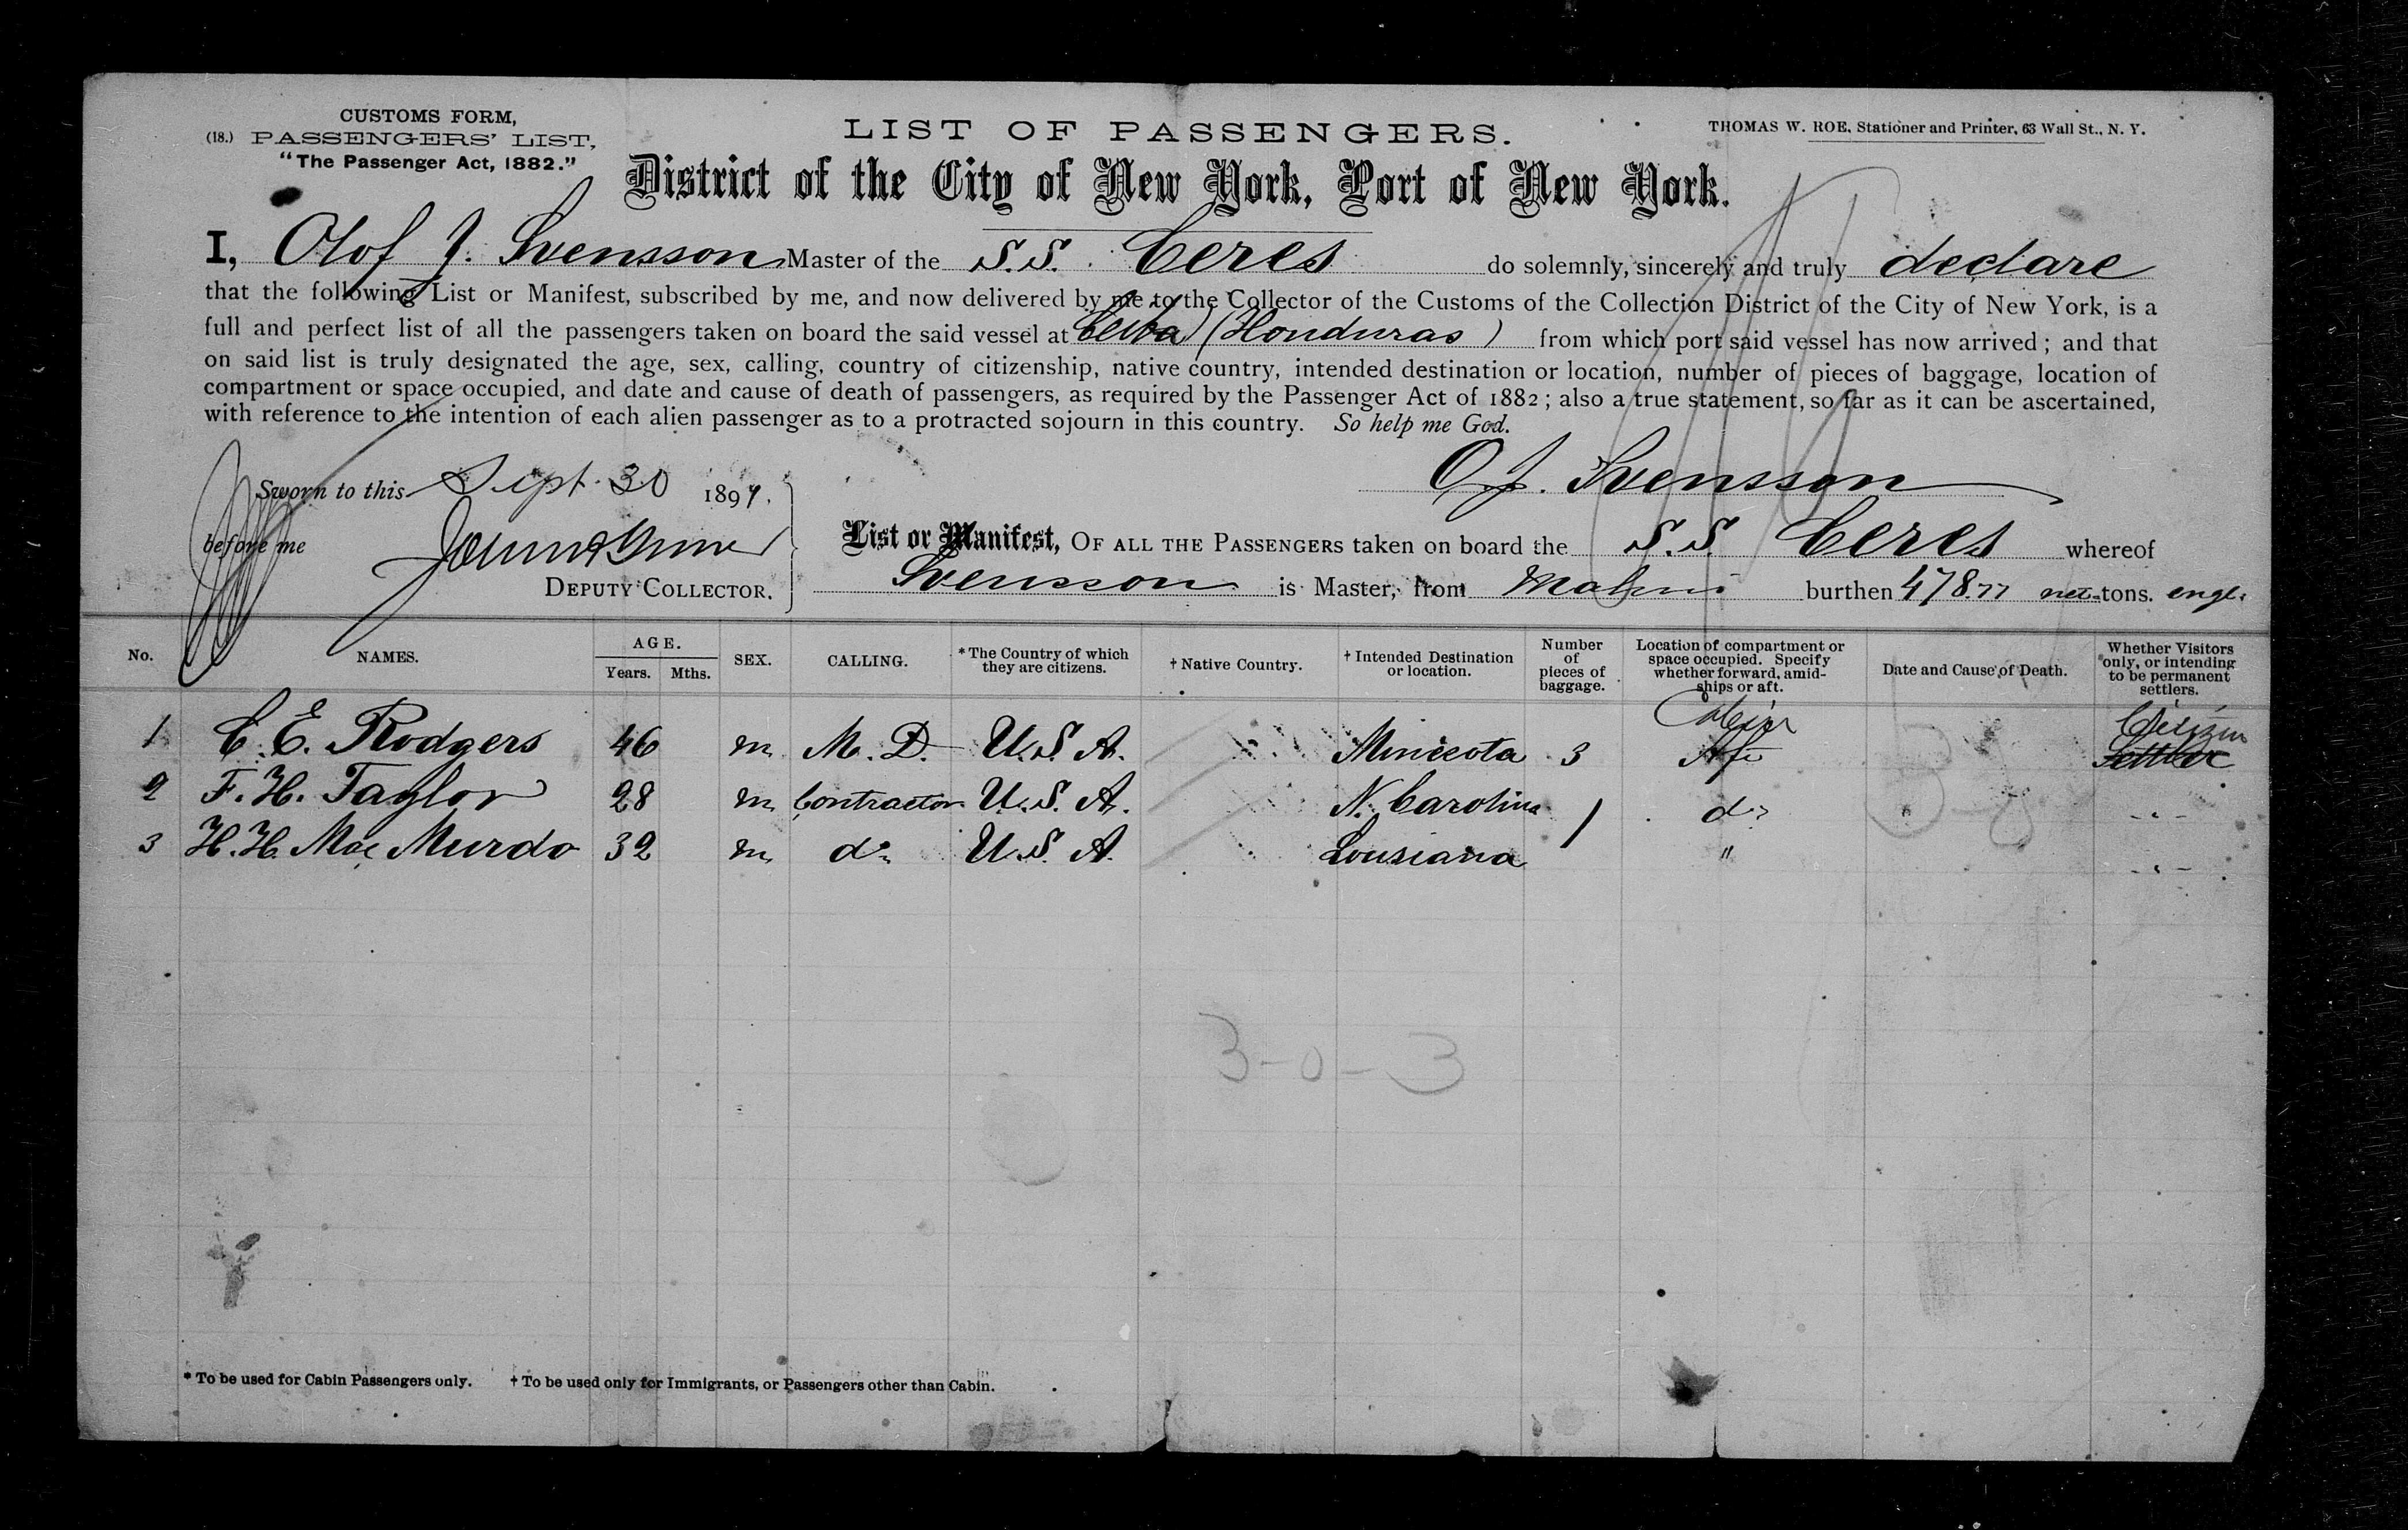 CUSTOMS FORM,
(18.) PASSENGERS' LIST,
"The Passenger Act, 1882."
LIST OF PASSENGERS.
THOMAS W. ROE, Stationer and Printer, 63 Wall St., N. Y.
District of the City of New York, Port of New York.
I, Olof J. Svensson Master of the S.S. Ceres do solemnly, sincerely and truly declare
that the following List or Manifest, subscribed by me, and now delivered by me to the Collector of the Customs of the Collection District of the City of New York, is a
full and perfect list of all the passengers taken on board the said vessel at Ceiba (Honduras) from which port said vessel has now arrived; and that
on said list is truly designated the age, sex, calling, country of citizenship, native country, intended destination or location, number of pieces of baggage, location of
compartment or space occupied, and date and cause of death of passengers, as required by the Passenger Act of 1882; also a true statement, so far as it can be ascertained,
with reference to the intention of each alien passenger as to a protracted sojourn in this country. So help me God.
O.J. Svensson
Sworn to this Sept. 30 1897.
before me
DEPUTY COLLECTOR.
List or Manifest, OF ALL THE PASSENGERS taken on board the S.S. Ceres whereof
Svensson is Master, from Malmö burthen 478.77 net tons. engl.
No. NAMES. AGE. Years. Mths. SEX. CALLING. * The Country of which they are citizens. † Native Country. † Intended Destination or location. Number of pieces of baggage. Location of compartment or space occupied. Specify whether forward, amidships or aft. Date and Cause of Death. Whether Visitors only, or intending to be permanent settlers.
Cabin Citizen
1 C. E. Rodgers 46 m M. D. U. S. A. Minieota 3 Aft Settler
2 F. H. Taylor 28 m Contractor U. S. A. N. Carolina 1 do - " -
3 H. H. Mac Murdo 32 m do U. S. A. Lousiana " - " -
3-0-3
* To be used for Cabin Passengers only. † To be used only for Immigrants, or Passengers other than Cabin.